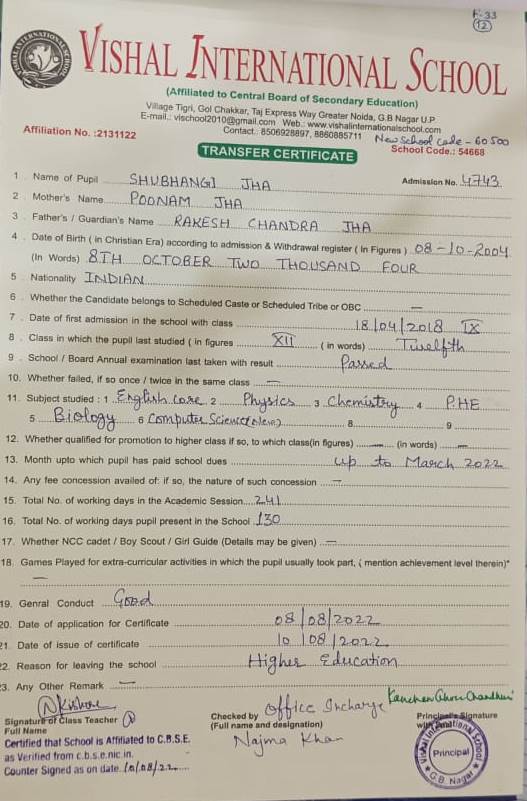 F-33
12
VISHAL INTERNATIONAL SCHOOL
VISHAL INTERNATIONAL SCHOOL
(Affiliated to Central Board of Secondary Education)
Village Tigri, Gol Chakkar, Taj Express Way Greater Noida, G.B Nagar U.P
E-mail.: vischool2010@gmail.com Web.: www.vishalinternationalschool.com
Affiliation No. :2131122 Contact.: 8506928897, 8860885711 New School code - 60500
TRANSFER CERTIFICATE School Code.: 54668
1 . Name of Pupil SHUBHANGI JHA Admission No. 4743
2 . Mother's Name POONAM JHA
3 . Father's / Guardian's Name RAKESH CHANDRA JHA
4 . Date of Birth ( in Christian Era) according to admission & Withdrawal register ( In Figures ) 08-10-2004
(In Words) 8TH OCTOBER TWO THOUSAND FOUR
5 . Nationality INDIAN
6 . Whether the Candidate belongs to Scheduled Caste or Scheduled Tribe or OBC —
7 . Date of first admission in the school with class 18/04/2018 IX
8 . Class in which the pupil last studied ( in figures XII ( in words) Twelfth
9 . School / Board Annual examination last taken with result Passed
10. Whether failed, if so once / twice in the same class —
11. Subject studied : 1 English core 2 Physics 3 Chemistry 4 P.HE
5 Biology 6 Computer Science (New) 8 9
12. Whether qualified for promotion to higher class if so, to which class(in figures) — (in words) —
13. Month upto which pupil has paid school dues up to March 2022
14. Any fee concession availed of: if so, the nature of such concession —
15. Total No. of working days in the Academic Session 241
16. Total No. of working days pupil present in the School 130
17. Whether NCC cadet / Boy Scout / Girl Guide (Details may be given) —
18. Games Played for extra-curricular activities in which the pupil usually took part, ( mention achievement level therein)*
—
19. Genral Conduct Good
20. Date of application for Certificate 08/08/2022
21. Date of issue of certificate 10/08/2022
22. Reason for leaving the school Higher Education
23. Any Other Remark —
NKishore Office Incharge
Signature of Class Teacher Checked by Principal's Signature
Full Name (Full name and designation) with
Certified that School is Affiliated to C.B.S.E. Najma Khan
as Verified from c.b.s.e.nic.in.
Counter Signed as on date 10/08/22
Vishal International School
Principal
G.B. Nagar